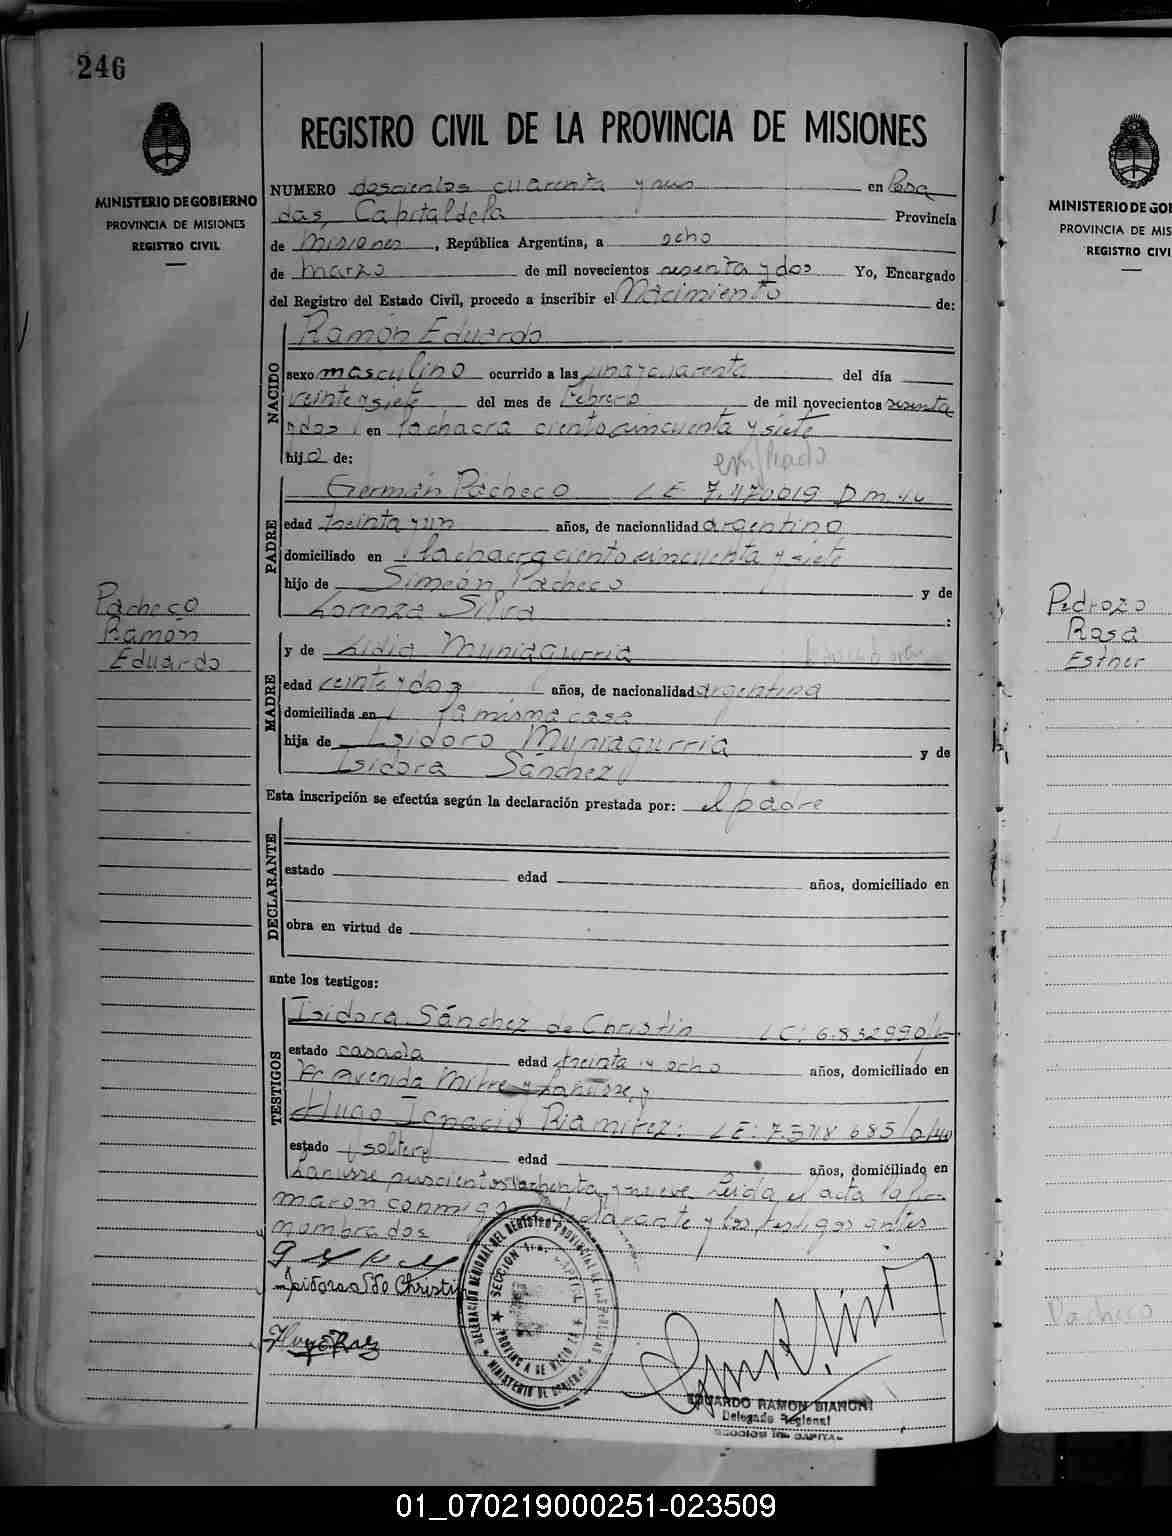 246
MINISTERIO DE GOBIERNO
PROVINCIA DE MISIONES
REGISTRO CIVIL
REGISTRO CIVIL DE LA PROVINCIA DE MISIONES
NUMERO doscientos cuarenta y un en Posa
das, Capital de la Provincia
de Misiones, República Argentina, a ocho
de marzo de mil novecientos sesenta y dos Yo, Encargado
del Registro del Estado Civil, procedo a inscribir el Nacimiento de:
NACIDO
Ramón Eduardo
sexo masculino ocurrido a las una y cuarenta del día
veinte y siete del mes de Febrero de mil novecientos sesenta
y dos en la chacra ciento cincuenta y siete
hijo de:
empleado
PADRE
Germán Pacheco L E 7.470019 D m
edad treinta y un años, de nacionalidad argentino
domiciliado en la chacra ciento cincuenta y siete
hijo de Simeón Pacheco y de
Lorenza Silva :
MADRE
y de Lidia Muniagurria
edad veinte y dos años, de nacionalidad argentina
domiciliada en la misma casa
hija de Isidoro Muniagurria y de
Isidora Sánchez
Esta inscripción se efectúa según la declaración prestada por: el padre
DECLARANTE
estado edad años, domiciliado en
obra en virtud de
ante los testigos:
TESTIGOS
Isidora Sánchez de Christin LC: 6.832990
estado casada edad treinta y ocho años, domiciliado en
Avenida Mitre y Lanusse, y
Hugo Ignacio Riamirez: LE: 7.5718 685
estado soltero edad años, domiciliado en
Lanusse y nueve Leida el acta la fir
maron conmigo declarante y los testigos antes
nombrados
Isidora S de Christin
Pacheco
Ramón
Eduardo
DELEGACION REGIONAL DEL REGISTRO PROVINCIAL DE LAS PERSONAS
SECCION CAPITAL
MINISTERIO DE GOBIERNO
EDUARDO RAMON BIANCHI
Delegado Regional
SECCION CAPITAL
MINISTERIO DE GO
PROVINCIA DE MIS
REGISTRO CIVI
Pedrozo
Rosa
Esther
Pacheco
01_070219000251-023509